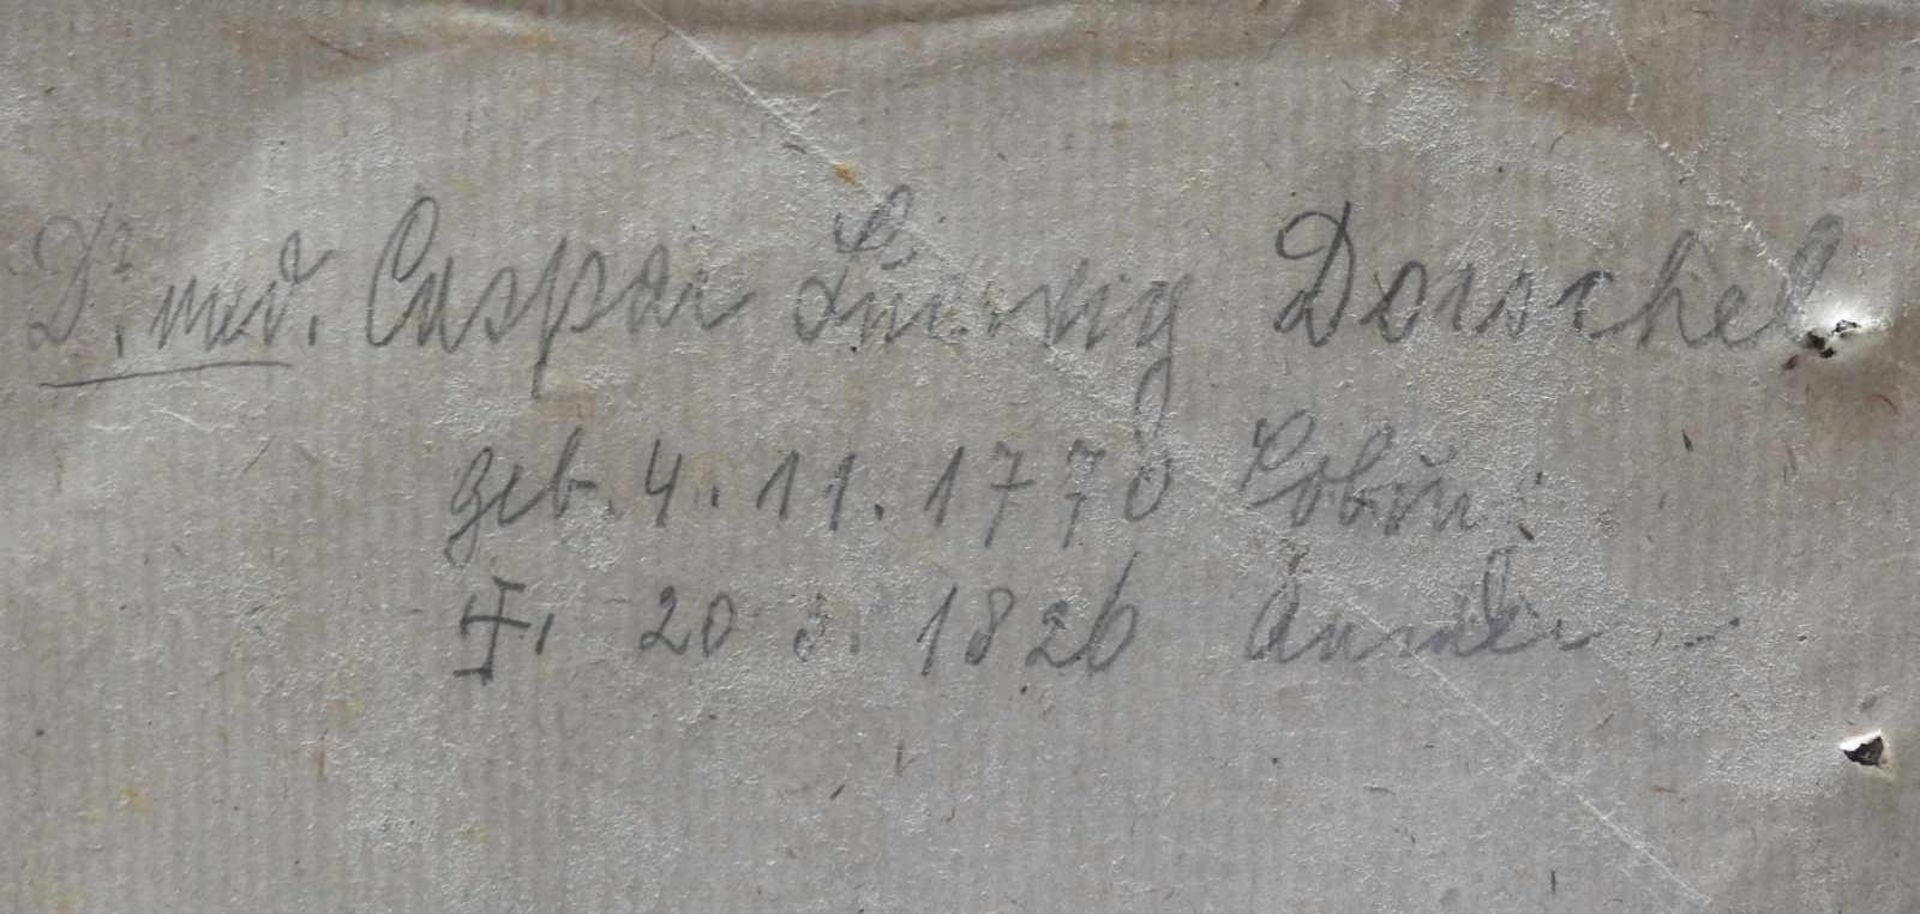 Dr. med. Caspar Ludwig Dorschel
geb. 4. 11. 1770
†. 20 3. 1826